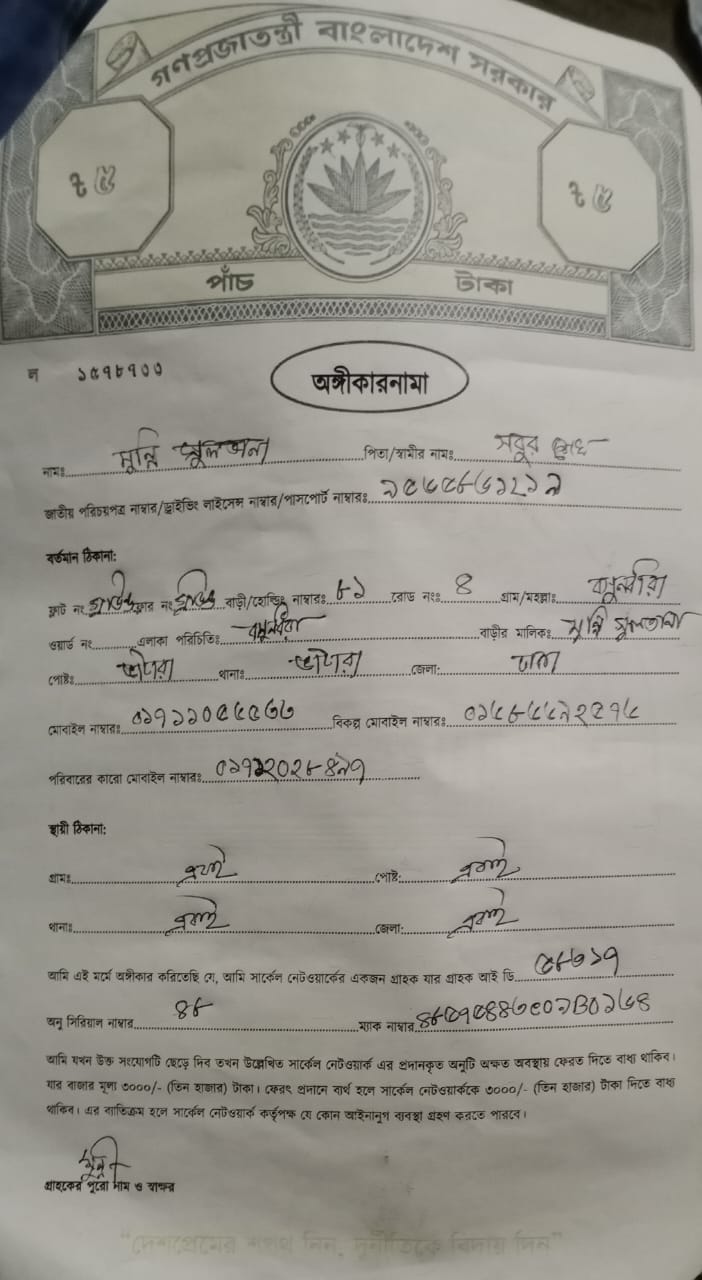 গণপ্রজাতন্ত্রী বাংলাদেশ সরকার
৳ ৫ ৳ ৫
পাঁচ টাকা
ন ১৫৭৮৭০০
অঙ্গীকারনামা
নামঃ মুন্নি সুলতানা পিতা/স্বামীর নামঃ সবুর
জাতীয় পরিচয়পত্র নাম্বার/ড্রাইভিং লাইসেন্স নাম্বার/পাসপোর্ট নাম্বারঃ
বর্তমান ঠিকানা:
ফ্লাট নং ফ্লোর নং বাড়ী/হোল্ডিং নাম্বারঃ ৮১ রোড নংঃ ৪ গ্রাম/মহল্লাঃ বসুন্ধরা
ওয়ার্ড নং এলাকা পরিচিতিঃ বসুন্ধরা বাড়ীর মালিকঃ মুন্নি সুলতানা
পোষ্টঃ ভাটারা থানাঃ ভাটারা জেলা: ঢাকা
মোবাইল নাম্বারঃ বিকল্প মোবাইল নাম্বারঃ
পরিবারের কারো মোবাইল নাম্বারঃ
স্থায়ী ঠিকানা:
গ্রামঃ একই পোষ্ট: একই
থানাঃ একই জেলা: একই
আমি এই মর্মে অঙ্গীকার করিতেছি যে, আমি সার্কেল নেটওয়ার্কের একজন গ্রাহক যার গ্রাহক আই ডি ৫৮৩১৭
অনু সিরিয়াল নাম্বার ৪৮ ম্যাক নাম্বার
আমি যখন উক্ত সংযোগটি ছেড়ে দিব তখন উল্লেখিত সার্কেল নেটওয়ার্ক এর প্রদানকৃত অনুটি অক্ষত অবস্থায় ফেরত দিতে বাধ্য থাকিব।
যার বাজার মূল্য ৩০০০/- (তিন হাজার) টাকা। ফেরৎ প্রদানে ব্যর্থ হলে সার্কেল নেটওয়ার্ককে ৩০০০/- (তিন হাজার) টাকা দিতে বাধ্য
থাকিব। এর ব্যতিক্রম হলে সার্কেল নেটওয়ার্ক কর্তৃপক্ষ যে কোন আইনানুগ ব্যবস্থা গ্রহণ করতে পারবে।
মুন্নি
গ্রাহকের পুরো নাম ও স্বাক্ষর
"দেশপ্রেমের শপথ নিন, দুর্নীতিকে বিদায় দিন"